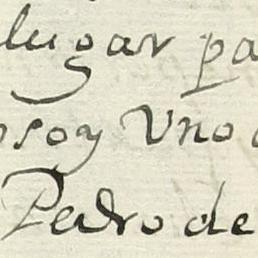 lugar pa
soy Vno
Pedro de